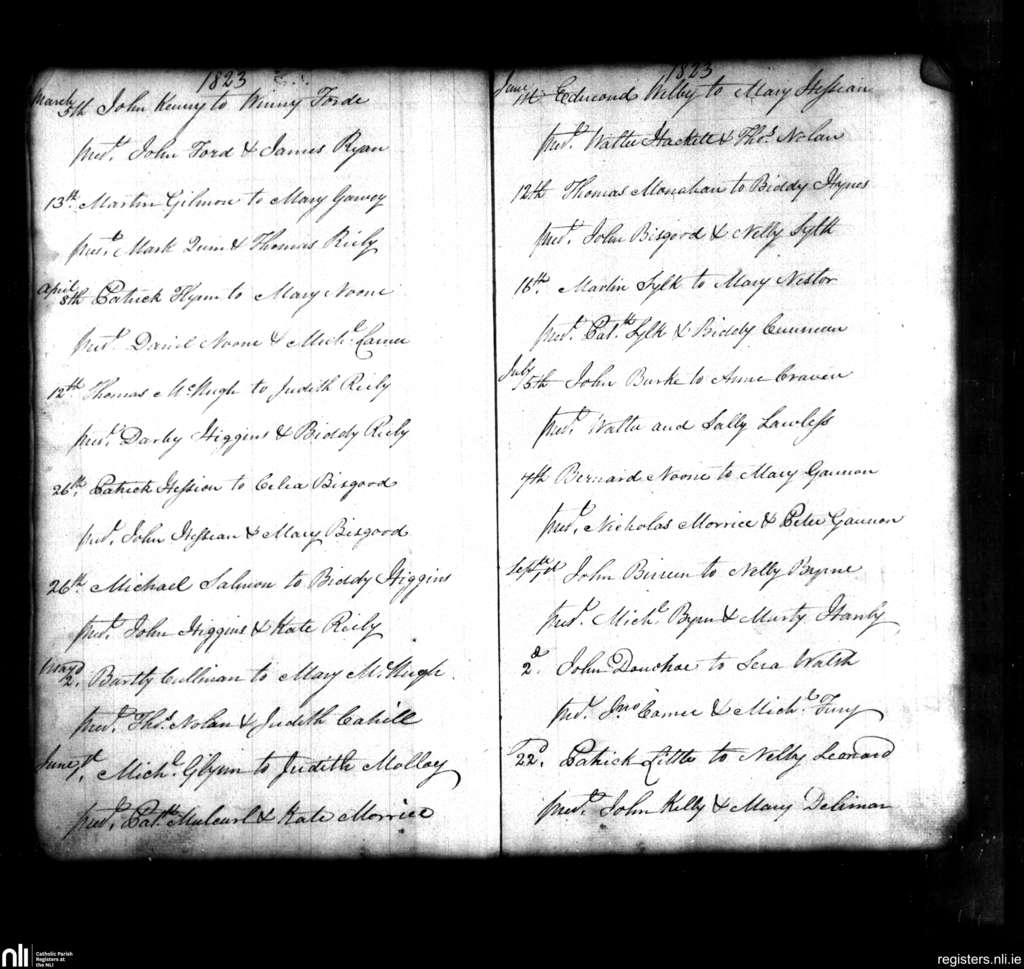 1823
March
5th John Kenny to Winny Forde
prest. John Ford & James Ryan
13th. Martin Gilmon to Mary Garvey
prest. Mark Quin & Thomas Riely
April
8th Patrick Flynn to Mary Noone
prest. David Noone & Michl.
12th Thomas McHugh to Judith Riely
prest. Darby Higgins & Biddy Riely
26th. Patrick Hession to Celia Bisgood
prest. John Hessian & Mary Bisgood
26th. Michael Salmon to Biddy Higgins
prest. John Higgins & Kate Riely
May
2d. Bartly Cullinan to Mary McHugh
prest. Thos. Nolan & Judith Cahill
June 1st. Michl. Glynn to Judith Molloy
prest. Patk. & Kate Morrice
1823
June
1st Edmond Welby to Mary Hessian
prest. Walter Hackett & Thos. Nolan
12th Thomas Monahan to Biddy Hynes
prest. John Bisgood & Nelly Sylk
16th. Martin Sylk to Mary Nestor
prest. Patk. Sylk & Biddy
July
5th John Burke to Anne Craven
prest. Walter and Sally Lawless
7th Bernard Noone to Mary Gannon
prest. Nicholas Morrice & Peter Gannon
Septr. 1st John to Nelly Byrne
prest. Michl. Byrn & Murty Hanby
2d. John Donohoe to Walsh
prest. Jno. & Michl. Fury
22d. Patrick Little to Nelly Leonard
prest. John Kelly & Mary
nli
Catholic Parish
Registers at
the NLI
registers.nli.ie